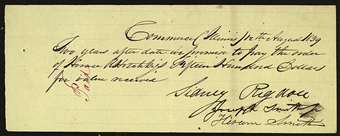 Commerce Illinois 12th August 1839
Two years after date we promise to pay the order
of Horace R. Hotchkiss Fifteen Hundred Dollars
for value received
Paid
Sidney Rigdon
Joseph Smith Jr
Hirum Smith